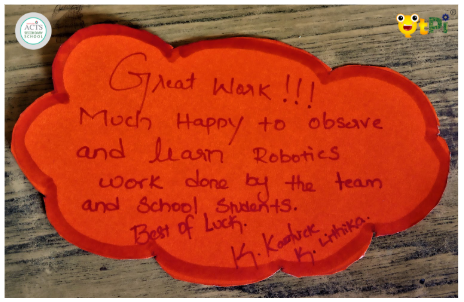 ACTS
SECONDARY
SCHOOL
utpi
Great Work!!!
Much Happy to observe
and learn Robotics
work done by the team
and School Students.
Best of Luck.
K. Karthick.
K. Lithika.